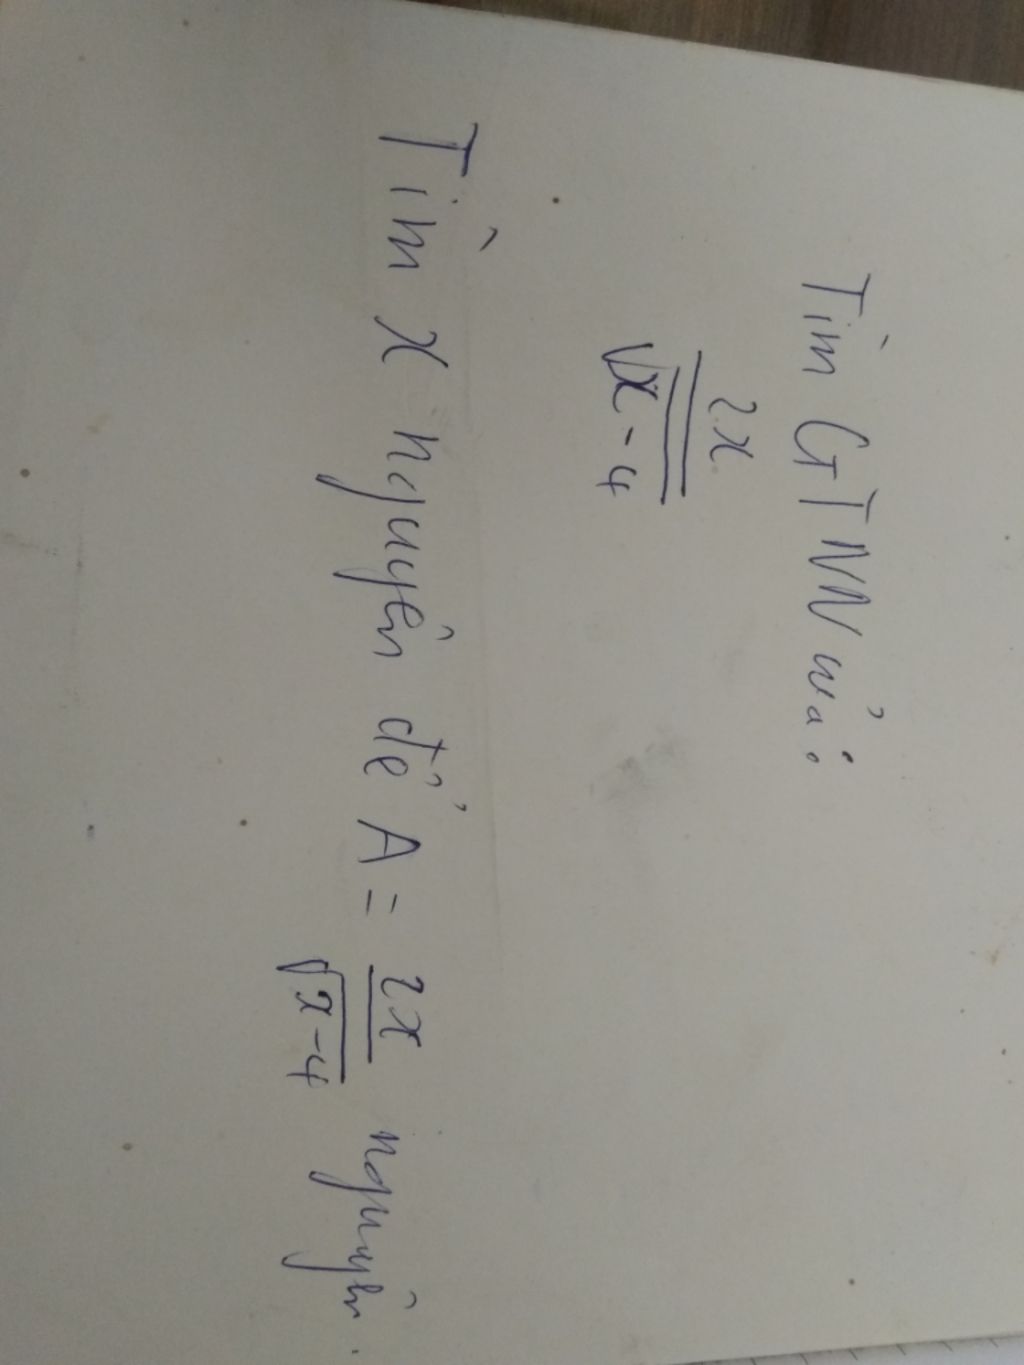 Tìm GTNN của:
2x
√x-4
Tìm x nguyên để A = 2x nguyên.
√x-4